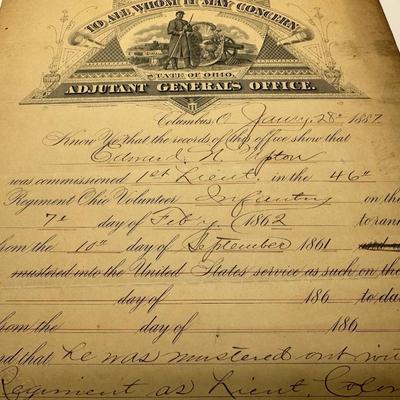 TO ALL WHOM IT MAY CONCERN
STATE OF OHIO,
ADJUTANT GENERAL'S OFFICE.
Columbus, O. Jan'y 28th 1887
Know Ye, that the records of this office show that
Edmund N. Upton
was commissioned 1st Lieut. in the 46th
Regiment Ohio Volunteer Infantry on the
7th day of Feb'y 1862 to rank
from the 10th day of September 1861 and
mustered into the United States service as such on the
day of 186 to da
from the day of 186
and that he was mustered out wi
Regiment as Lieut. Colon